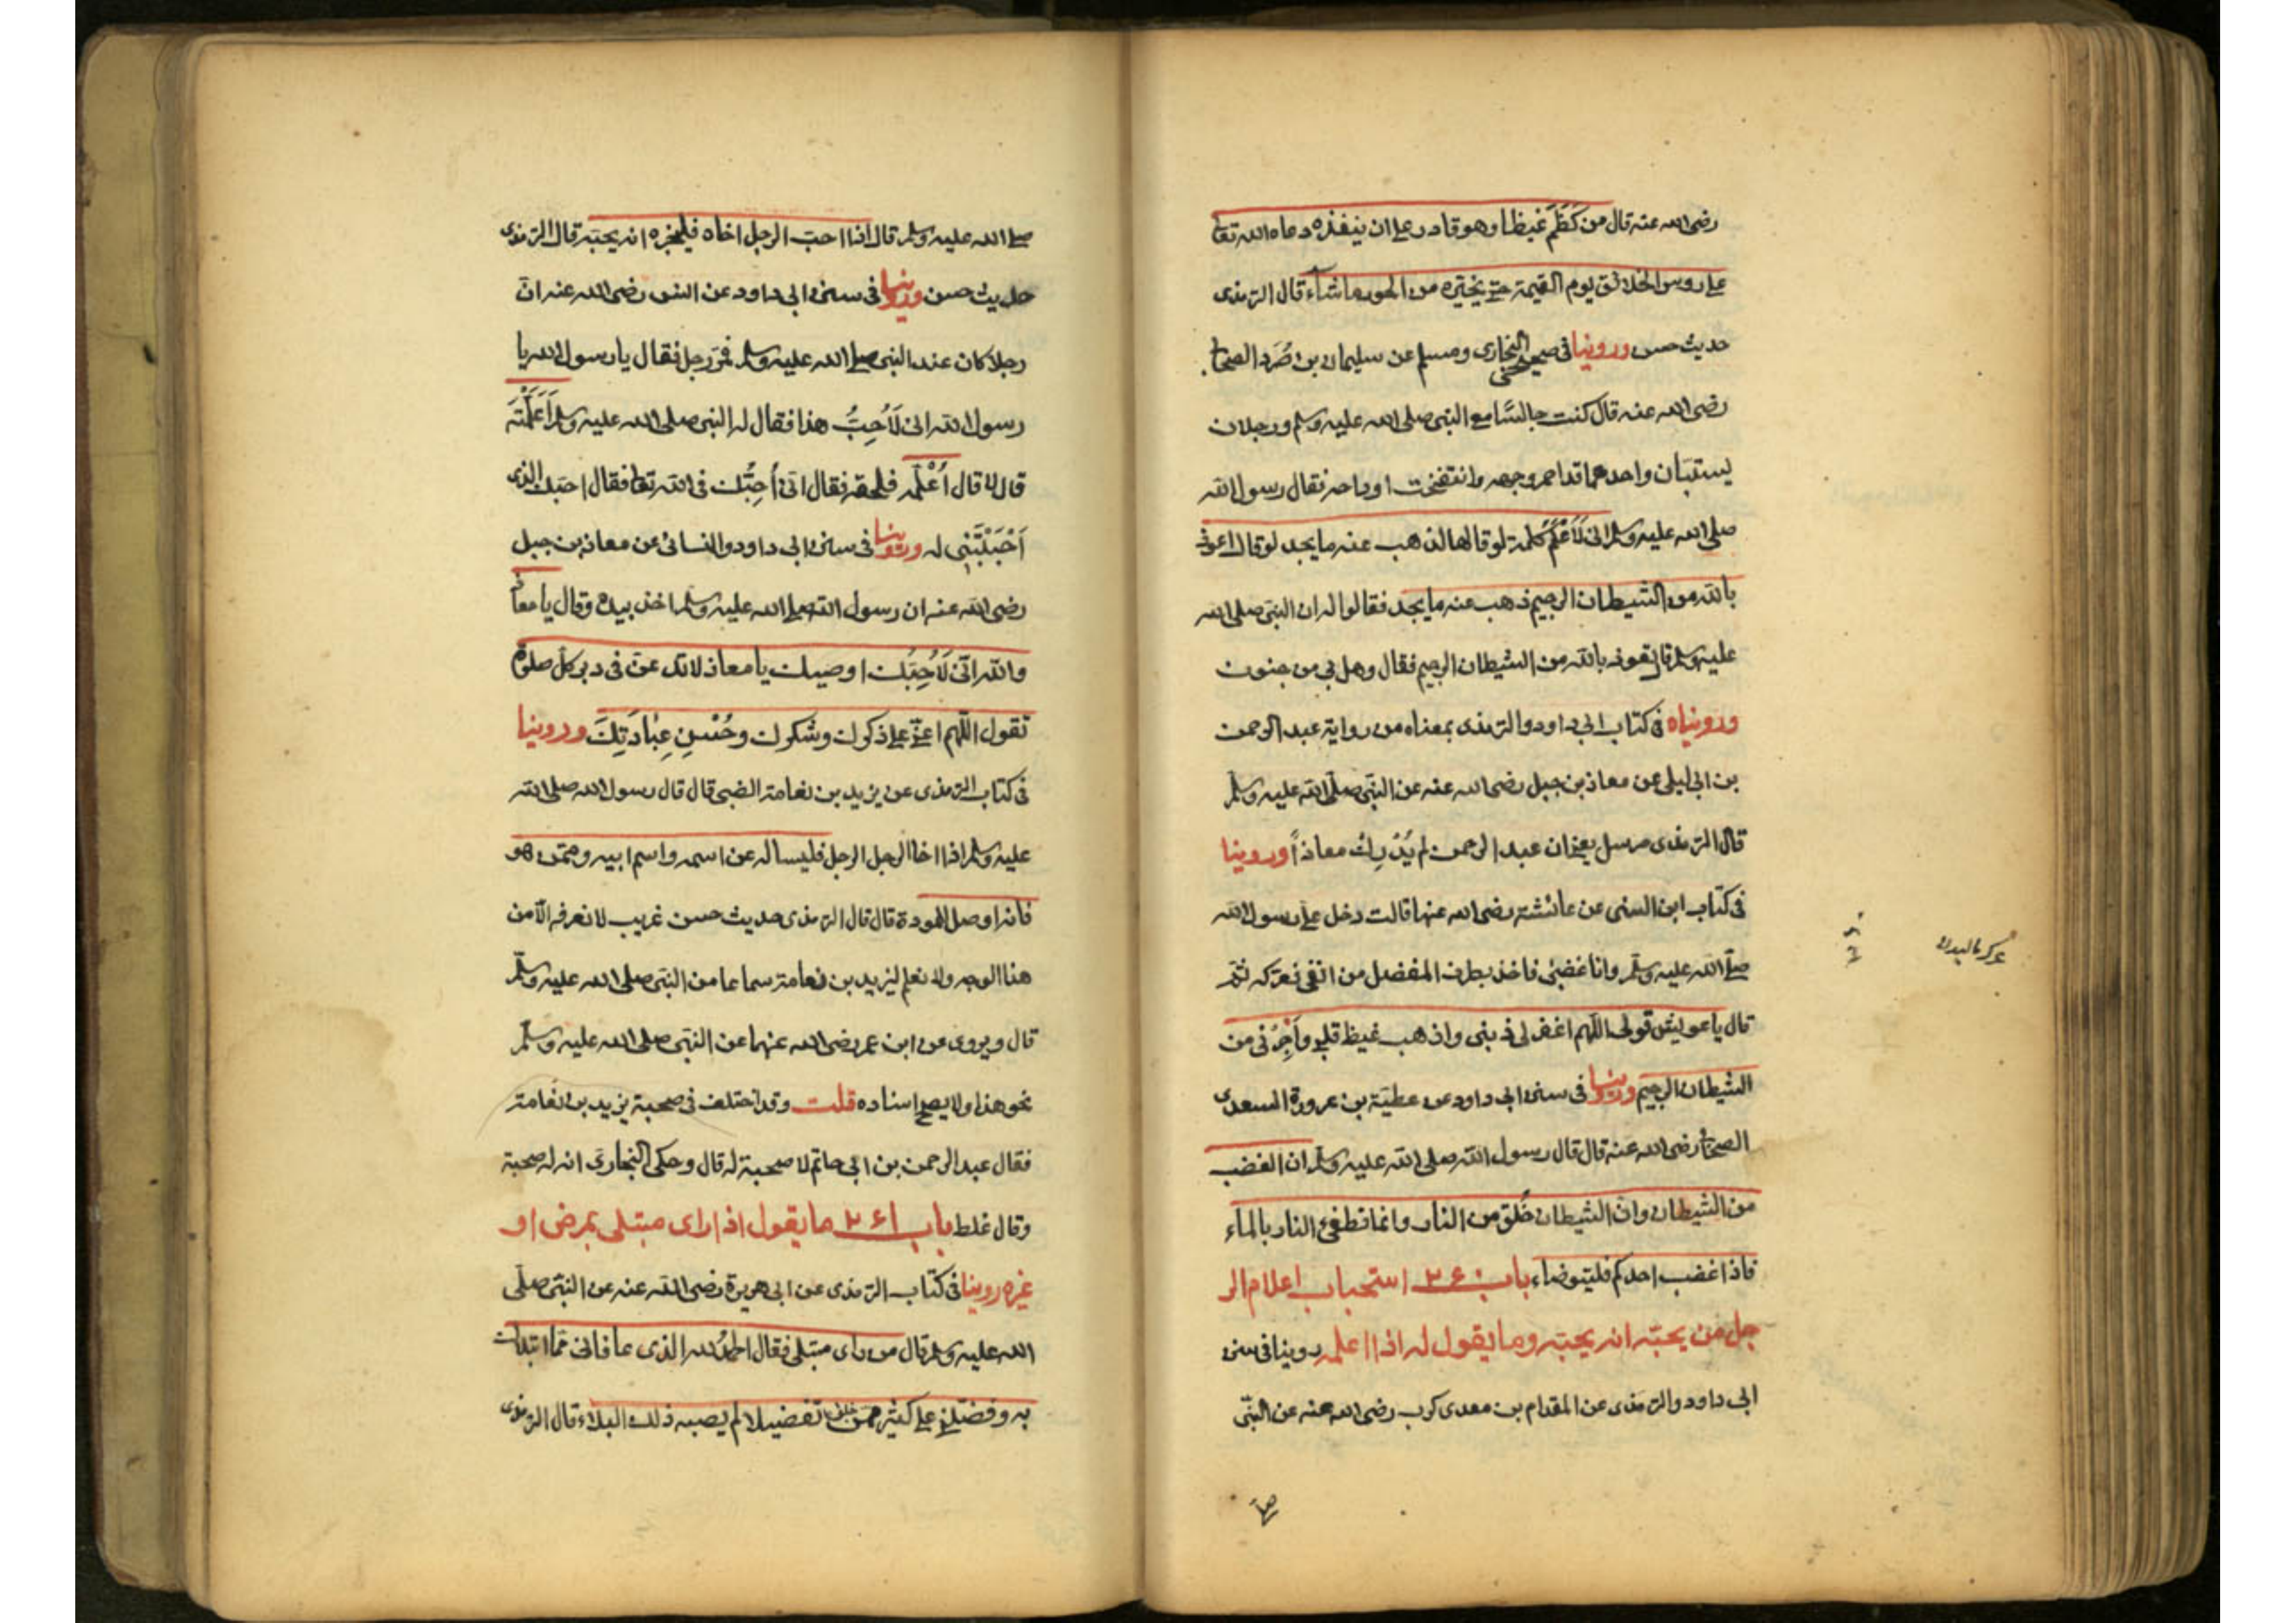 رضى الله عنه قال من كَظَمَ غيظا وهو قادر على ان ينفذه دعاه الله تعا
على روس الخلائق يوم القيمة حتى يخيّره من الحور ما شاء قال الترمذى
حديث حسن وروينا فى صحيحى البخارى ومسلم عن سليمان بن صُرَد الصحابى
رضى الله عنه قال كنت جالسًا مع النبى صلى الله عليه وسلم ورجلان
يستبّان واحدهما قد احمر وجهه وانتفخت اوداجه فقال رسول الله
صلى الله عليه وسلم انى لَاَعْلَمُ كلمة لو قالها لذهب عنه ما يجد لو قال اعوذ
بالله من الشيطان الرجيم ذهب عنه ما يجد فقالوا له ان النبى صلى الله
عليه وسلم قال تعوذ بالله من الشيطان الرجيم فقال وهل بى من جنون
ورويناه فى كتاب ابى داود والترمذى بمعناه من رواية عبد الرحمن
بن ابى ليلى عن معاذ بن جبل رضى الله عنه عن النبى صلى الله عليه وسلم
قال الترمذى مرسل يعنى ان عبد الرحمن لم يُدْرِك معاذاً وروينا
فى كتاب ابن السنى عن عائشة رضى الله عنها قالت دخل على رسول الله
صلى الله عليه وسلم وانا غضبى فاخذ بطرف المفصل من انفى فعركه ثم
قال يا عويش قولى اللهم اغفر لى ذنبى واذهب غيظ قلبى وأجِرْنى من
الشيطان الرجيم وروينا فى سنن ابى داود عن عطية بن عروة السعدى
الصحابى رضى الله عنه قال قال رسول الله صلى الله عليه وسلم ان الغضب
من الشيطان وان الشيطان خُلق من النار وانما تطفئ النار بالماء
فاذا غضب احدكم فليتوضاء باب ٢٤٠ استحباب اعلام الر
جل من يحبّه انه يحبّه وما يقول له اذا اعلمه روينا فى سنن
ابى داود والترمذى عن المقدام بن معدى كرب رضى الله عنه عن النبى
صلى
صلى الله عليه وسلم قال اذا احبّ الرجل اخاه فليخبره انه يحبّه قال الترمذى
حديث حسن وروينا فى سنن ابى داود عن انس رضى الله عنه ان
رجلا كان عند النبى صلى الله عليه وسلم فمرّ رجل فقال يا رسول الله يا
رسول الله انى لَاُحِبُّ هذا فقال له النبى صلى الله عليه وسلم أَعَلَّمْتَه
قال لا قال أَعْلِمْه فلحقه فقال انى أُحِبُّك فى الله تعا فقال احبك الذى
اَحْبَبْتَنِى له وروينا فى سنن ابى داود والنسائى عن معاذ بن جبل
رضى الله عنه ان رسول الله صلى الله عليه وسلم اخذ بيده وقال يا معاذ
والله انّى لَاُحِبُّك اوصيك يا معاذ لا تدعن فى دبر كل صلوة
تقول اللهم اعنّى على ذكرك وشكرك وحُسْنِ عِبَادَتِكَ وروينا
فى كتاب الترمذى عن يزيد بن نعامة الضبى قال قال رسول الله صلى الله
عليه وسلم اذا اخا الرجل الرجل فليساله عن اسمه واسم ابيه وممّن هو
فانه اوصل للمودة قال قال الترمذى حديث حسن غريب لا نعرفه الّا من
هذا الوجه ولا نعلم ليزيد بن نعامة سماعا من النبى صلى الله عليه وسلم
قال ويروى عن ابن عمر رضى الله عنهما عن النبى صلى الله عليه وسلم
نحو هذا ولا يصح اسناده قلت وقد اختلف فى صحبة يزيد بن نعامة
فقال عبد الرحمن بن ابى حاتم لا صحبة له قال وحكى البخارى انه له صحبة
وقال غلط باب ٢٤١ ما يقول اذا راى مبتلى بمرض او
غيره روينا فى كتاب الترمذى عن ابى هريرة رضى الله عنه عن النبى صلى
الله عليه وسلم قال من راى مبتلى فقال الحمدُ لله الذى عافانى ممّا ابتلاك
به وفضلنى على كثير ممن خلق تفضيلا لم يصبه ذلك البلاء قال الترمذى